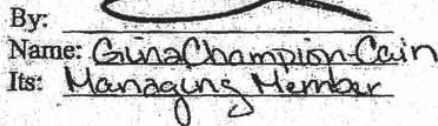 By:
Name: Gina Champion-Cain
Its: Managing Member